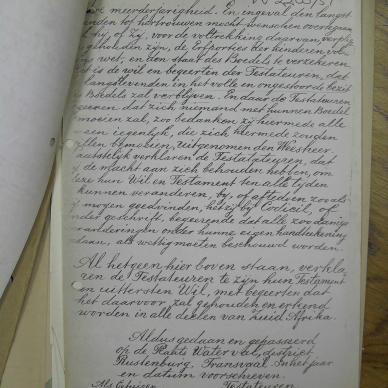 meerderjarigheid. En ingeval den langst
tot hertrouwen mocht wenschen overte gaan
hy of zy, voor de voltrekking daarvan, verpl
gehouden zyn, de Erfporties der kinderen vol
wet, en den staat des Boedels te verzekeren
is de wil en begeerten der Testateuren, dat
langstlevenden in het volle en ongestoorde bezit
Boedels zal verblyven. En daar de Testateuren
begeeren dat zich niemand met hunnen Boedel
moeien zal, zoo bedanken zy hiermede alle
een iegenlyk, die zich hiermede zouden
willen bemoeien, uitgenomen den Weesheer.
laatstelyk verklaren de Testateuren, dat
zy de macht aan zich behouden hebben, om
deze hun Wil en Testament ten alle tyden
kunnen veranderen, by, of afteden zoo als
zy mogen goedvinden, het zy by Codicil, of
ander geschrift, begeerende dat alle zoodanige
veranderingen onder hunne eigen handteekening
gedaan, als wettig moeten beschouwd worden.
Al hetgeen hier boven staan, verkla
ren de Testateuren te zyn hun Testament
en uittersten Wil, met begeerten dat
het daarvoor zal gehouden en erkend
worden in alle deelen van Zuid Afrika.
Aldus gedaan en gepasseerd
op de Plaats Waterval, district
Rustenburg, Transvaal. In het jaar
en datum voorschreven.
Als Getuigen Testateuren